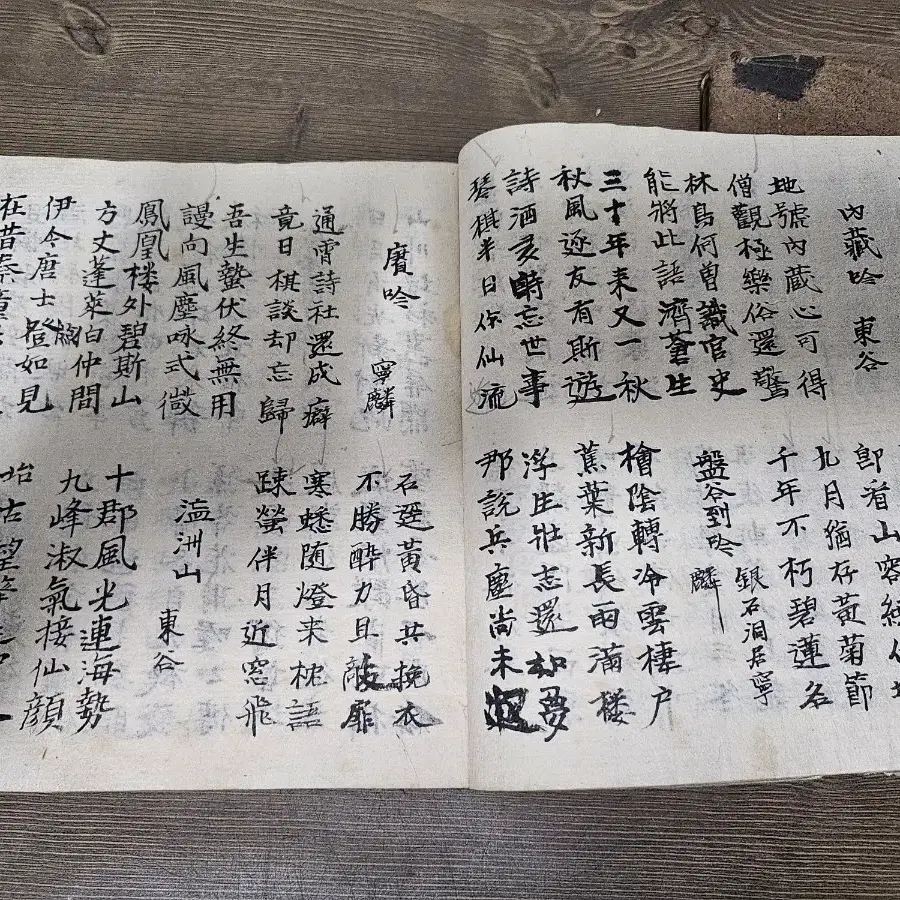 內藏吟 東谷
卽看山容經
地號內藏心可得
僧觀極樂俗還驚
九月猶存黃菊節
千年不朽碧蓮名
林鳥何曾識官史
能將此語濟蒼生
盤谷到吟 銀石洞居寧麟
三十年来又一秋
秋風逐友有斯遊
檜陰轉冷雲棲戶
蕉葉新長雨滿樓
詩酒多時忘世事
琴棋半日作仙流
浮生壯志還如夢
那說兵塵尚未
賡吟 寧麟
石逕黃昏共挽衣
不勝醉力且敲扉
通宵詩社還成癖
竟日棋談却忘歸
寒蟋随燈来枕語
踈螢伴月近窓飛
吾生蟄伏終無用
謾向風塵咏式微
溢洲山 東谷
鳳凰楼外碧斯山
方丈蓬萊伯仲間
十郡風光連海勢
九峰淑氣接仙顔
伊今唐士登如見
在昔秦童
古望